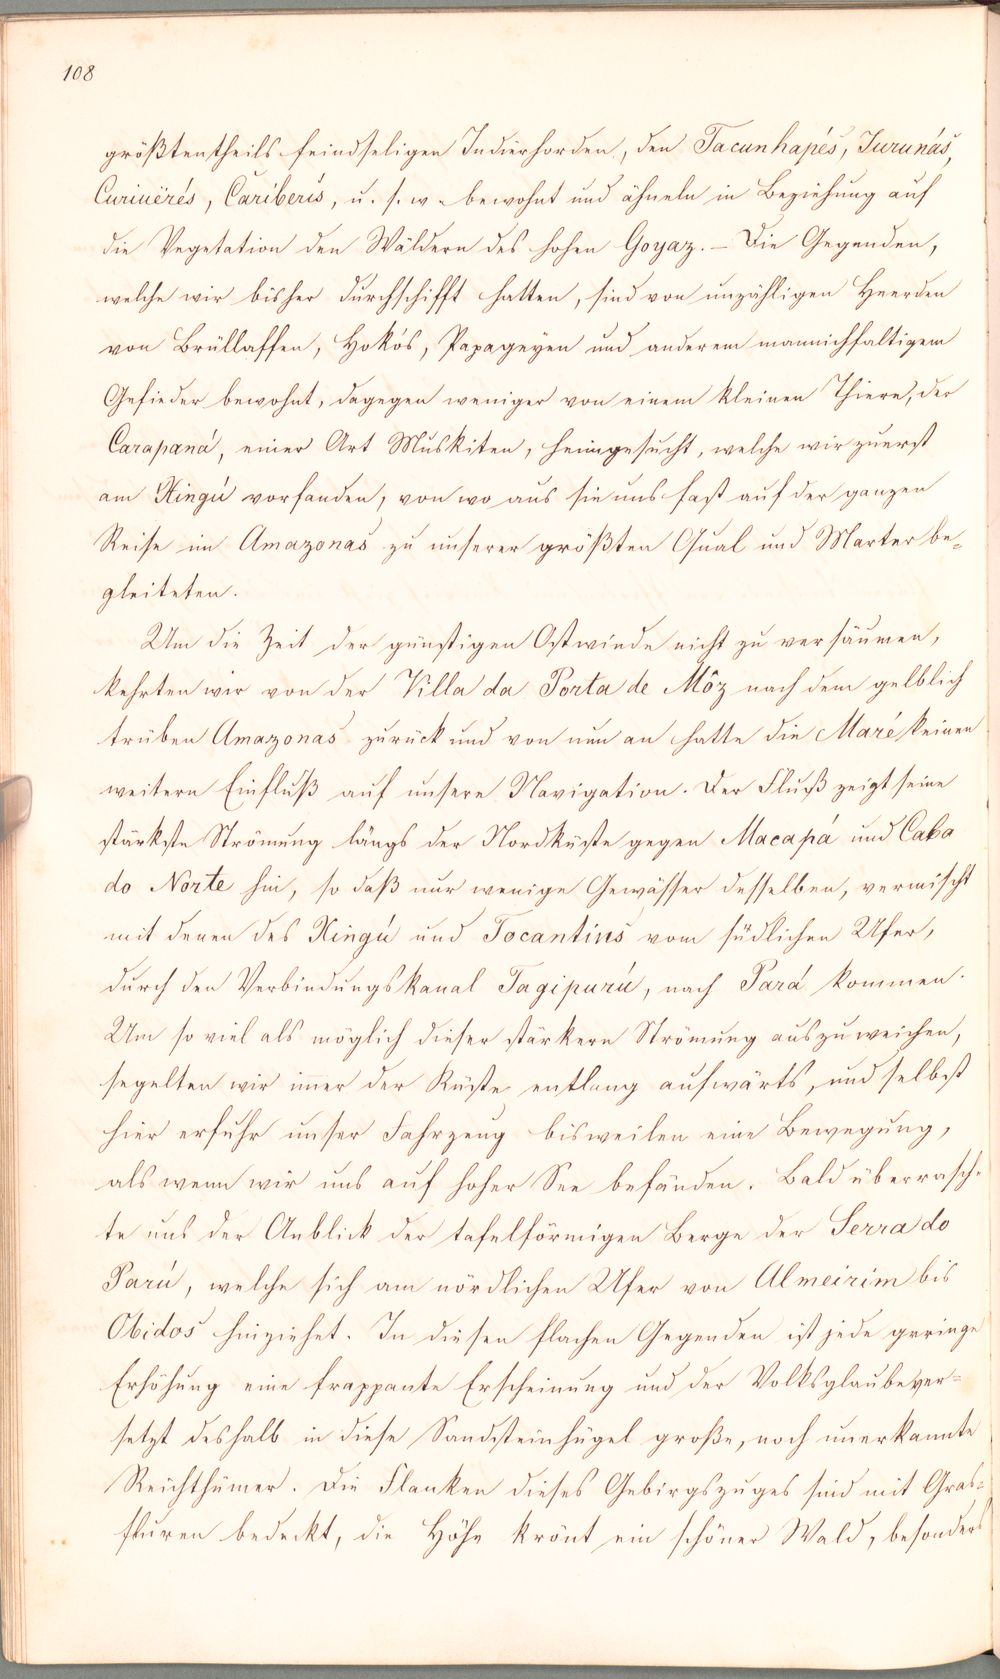 108
größtentheils feindseligen Indierhorden, den Tacunhapés, Jurunás,
Curiuërés, Cariberis, u. s. w. bewohnt und ähneln in Beziehung auf
die Vegetation den Wäldern des hohen Goyaz. — Die Gegenden,
welche wir bisher durchschifft hatten, sind von unzähligen Heerden
von Brüllaffen, Hokós, Papageyen und anderem mannichfaltigem
Gefieder bewohnt, dagegen weniger von einem kleinen Thiere, der
Carapaná, einer Art Muskiten, heimgesucht, welche wir zuerst
am Xingú vorfanden, von wo aus sie uns fast auf der ganzen
Reise im Amazonas zu unserer größten Qual und Marter be-
gleiteten.
Um die Zeit der günstigen Ostwinde nicht zu versäumen,
kehrten wir von der Villa da Porta de Môz nach dem gelblich
trüben Amazonas zurück und von nun an hatte die Maré keinen
weitern Einfluß auf unsere Navigation. Der Fluß zeigt seine
stärkste Strömung längs der Nordküste gegen Macapá und Cabo
do Norte hin, so daß nur wenige Gewässer desselben, vermischt
mit denen des Xingú und Tocantins vom südlichen Ufer,
durch den Verbindungskanal Tagipurú, nach Pará kommen.
Um so viel als möglich dieser stärkern Strömung auszuweichen,
segelten wir imer der Küste entlang aufwärts, und selbst
hier erfuhr unser Fahrzeug bisweilen eine Bewegung,
als wenn wir uns auf hoher See befänden. Bald überrasch-
te uns der Anblick der tafelförmigen Berge der Serra do
Parú, welche sich am nördlichen Ufer von Almeirim bis
Obidos hinziehet. In diesen flachen Gegenden ist jede geringe
Erhöhung eine frappante Erscheinung und der Volksglaube ver-
setzt deshalb in diese Sandsteinhügel große, noch unerkannte
Reichthümer. Die Flanken dieses Gebirgszuges sind mit Gras-
fluren bedeckt, die Höhe krönt ein schöner Wald, besonders